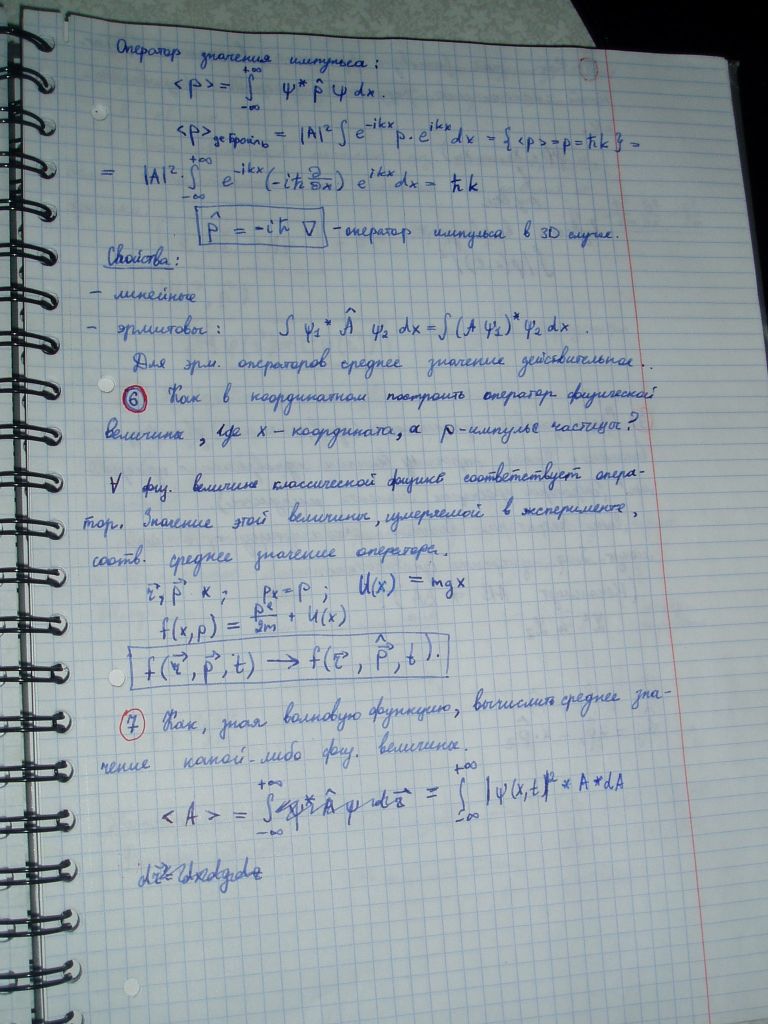 Оператор значения импульса:
<p> = ∫_{-∞}^{+∞} ψ* p̂ ψ dx.
<p>_{де Бройль} = |A|² ∫ e^{-ikx} p · e^{ikx} dx = {<p> = p = ħk} =
= |A|² · ∫_{-∞}^{+∞} e^{-ikx} (-iħ ∂/∂x) e^{ikx} dx = ħk
p̂ = -iħ ∇ - оператор импульса в 3D случае.
Свойства:
- линейные
- эрмитовы: ∫ ψ₁* Â ψ₂ dx = ∫ (A ψ₁)* ψ₂ dx.
Для эрм. операторов среднее значение действительное..
6 Как в координатном построить оператор физической
величины, где x – координата, а p – импульс частицы?
∀ физ. величине классической физике соответствует опера-
тор. Значение этой величины, измеряемой в эксперименте,
соотв. среднее значение оператора.
r⃗, p⃗ x; pₓ = p; U(x) = mgx
f(x,p) = p²/2m + U(x)
f(r⃗, p⃗, t) → f(r⃗, p̂⃗, t).
7 Как, зная волновую функцию, вычислить среднее зна-
чение какой-либо физ. величины.
<A> = ∫_{-∞}^{+∞} ψ* Â ψ dr⃗ = ∫_{-∞}^{+∞} |ψ(x,t)|² * A * dA
dr⃗ = dxdydz